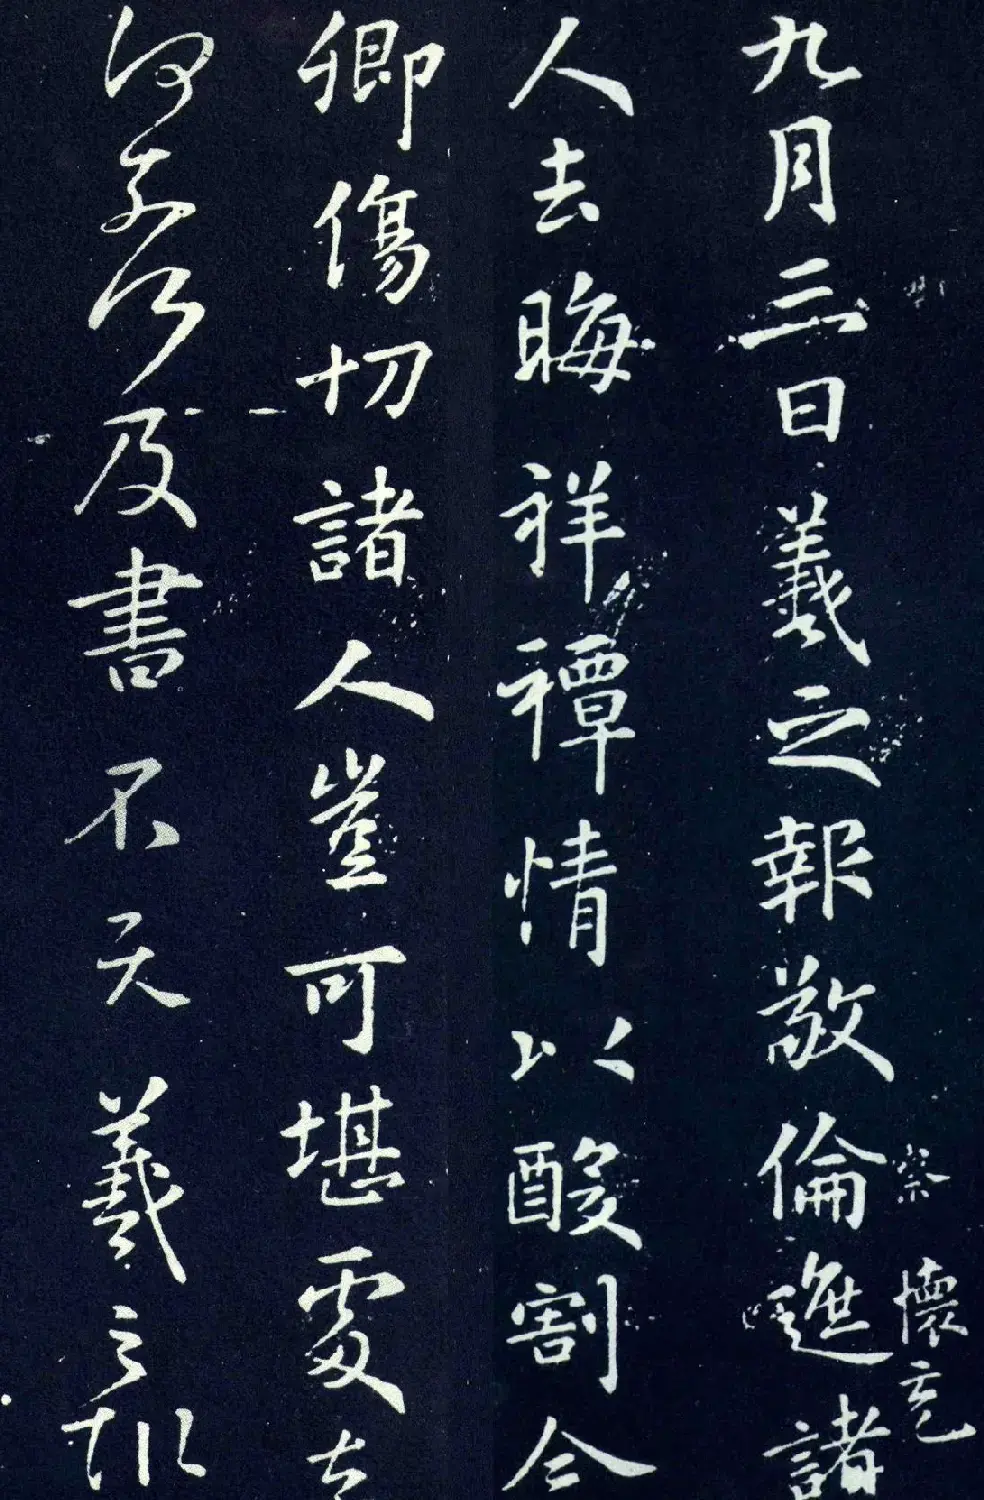 九月三日羲之報敬倫遮諸
察
懷充
人去晦祥禫情以酸割念
卿傷切諸人豈可堪處奈
何奈何及書不羲之報